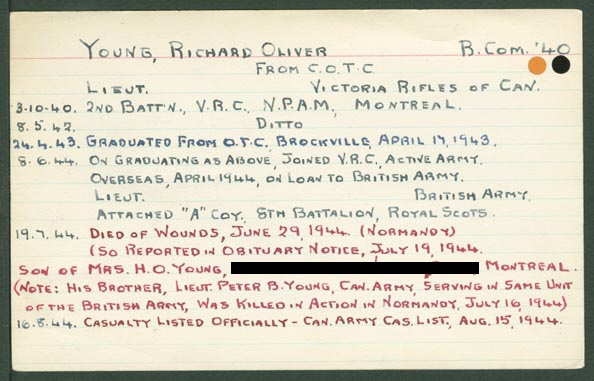 YOUNG, RICHARD OLIVER B.COM. '40
FROM C.O.T.C.
LIEUT. VICTORIA RIFLES OF CAN.
3.10.40. 2ND BATT'N., V.R.C., N.P.A.M., MONTREAL.
8.5.42. DITTO
24.4.43. GRADUATED FROM O.T.C., BROCKVILLE, APRIL 17, 1943.
8.6.44. ON GRADUATING AS ABOVE, JOINED V.R.C., ACTIVE ARMY.
OVERSEAS, APRIL 1944, ON LOAN TO BRITISH ARMY.
LIEUT. BRITISH ARMY.
ATTACHED "A" COY., 8TH BATTALION, ROYAL SCOTS.
19.7.44. DIED OF WOUNDS, JUNE 29, 1944. (NORMANDY)
(SO REPORTED IN OBITUARY NOTICE, JULY 19, 1944.
SON OF MRS. H.O. YOUNG, MONTREAL.
(NOTE: HIS BROTHER, LIEUT. PETER B. YOUNG, CAN. ARMY, SERVING IN SAME UNIT
OF THE BRITISH ARMY, WAS KILLED IN ACTION IN NORMANDY, JULY 16, 1944)
16.8.44. CASUALTY LISTED OFFICIALLY - CAN. ARMY CAS. LIST, AUG. 15, 1944.